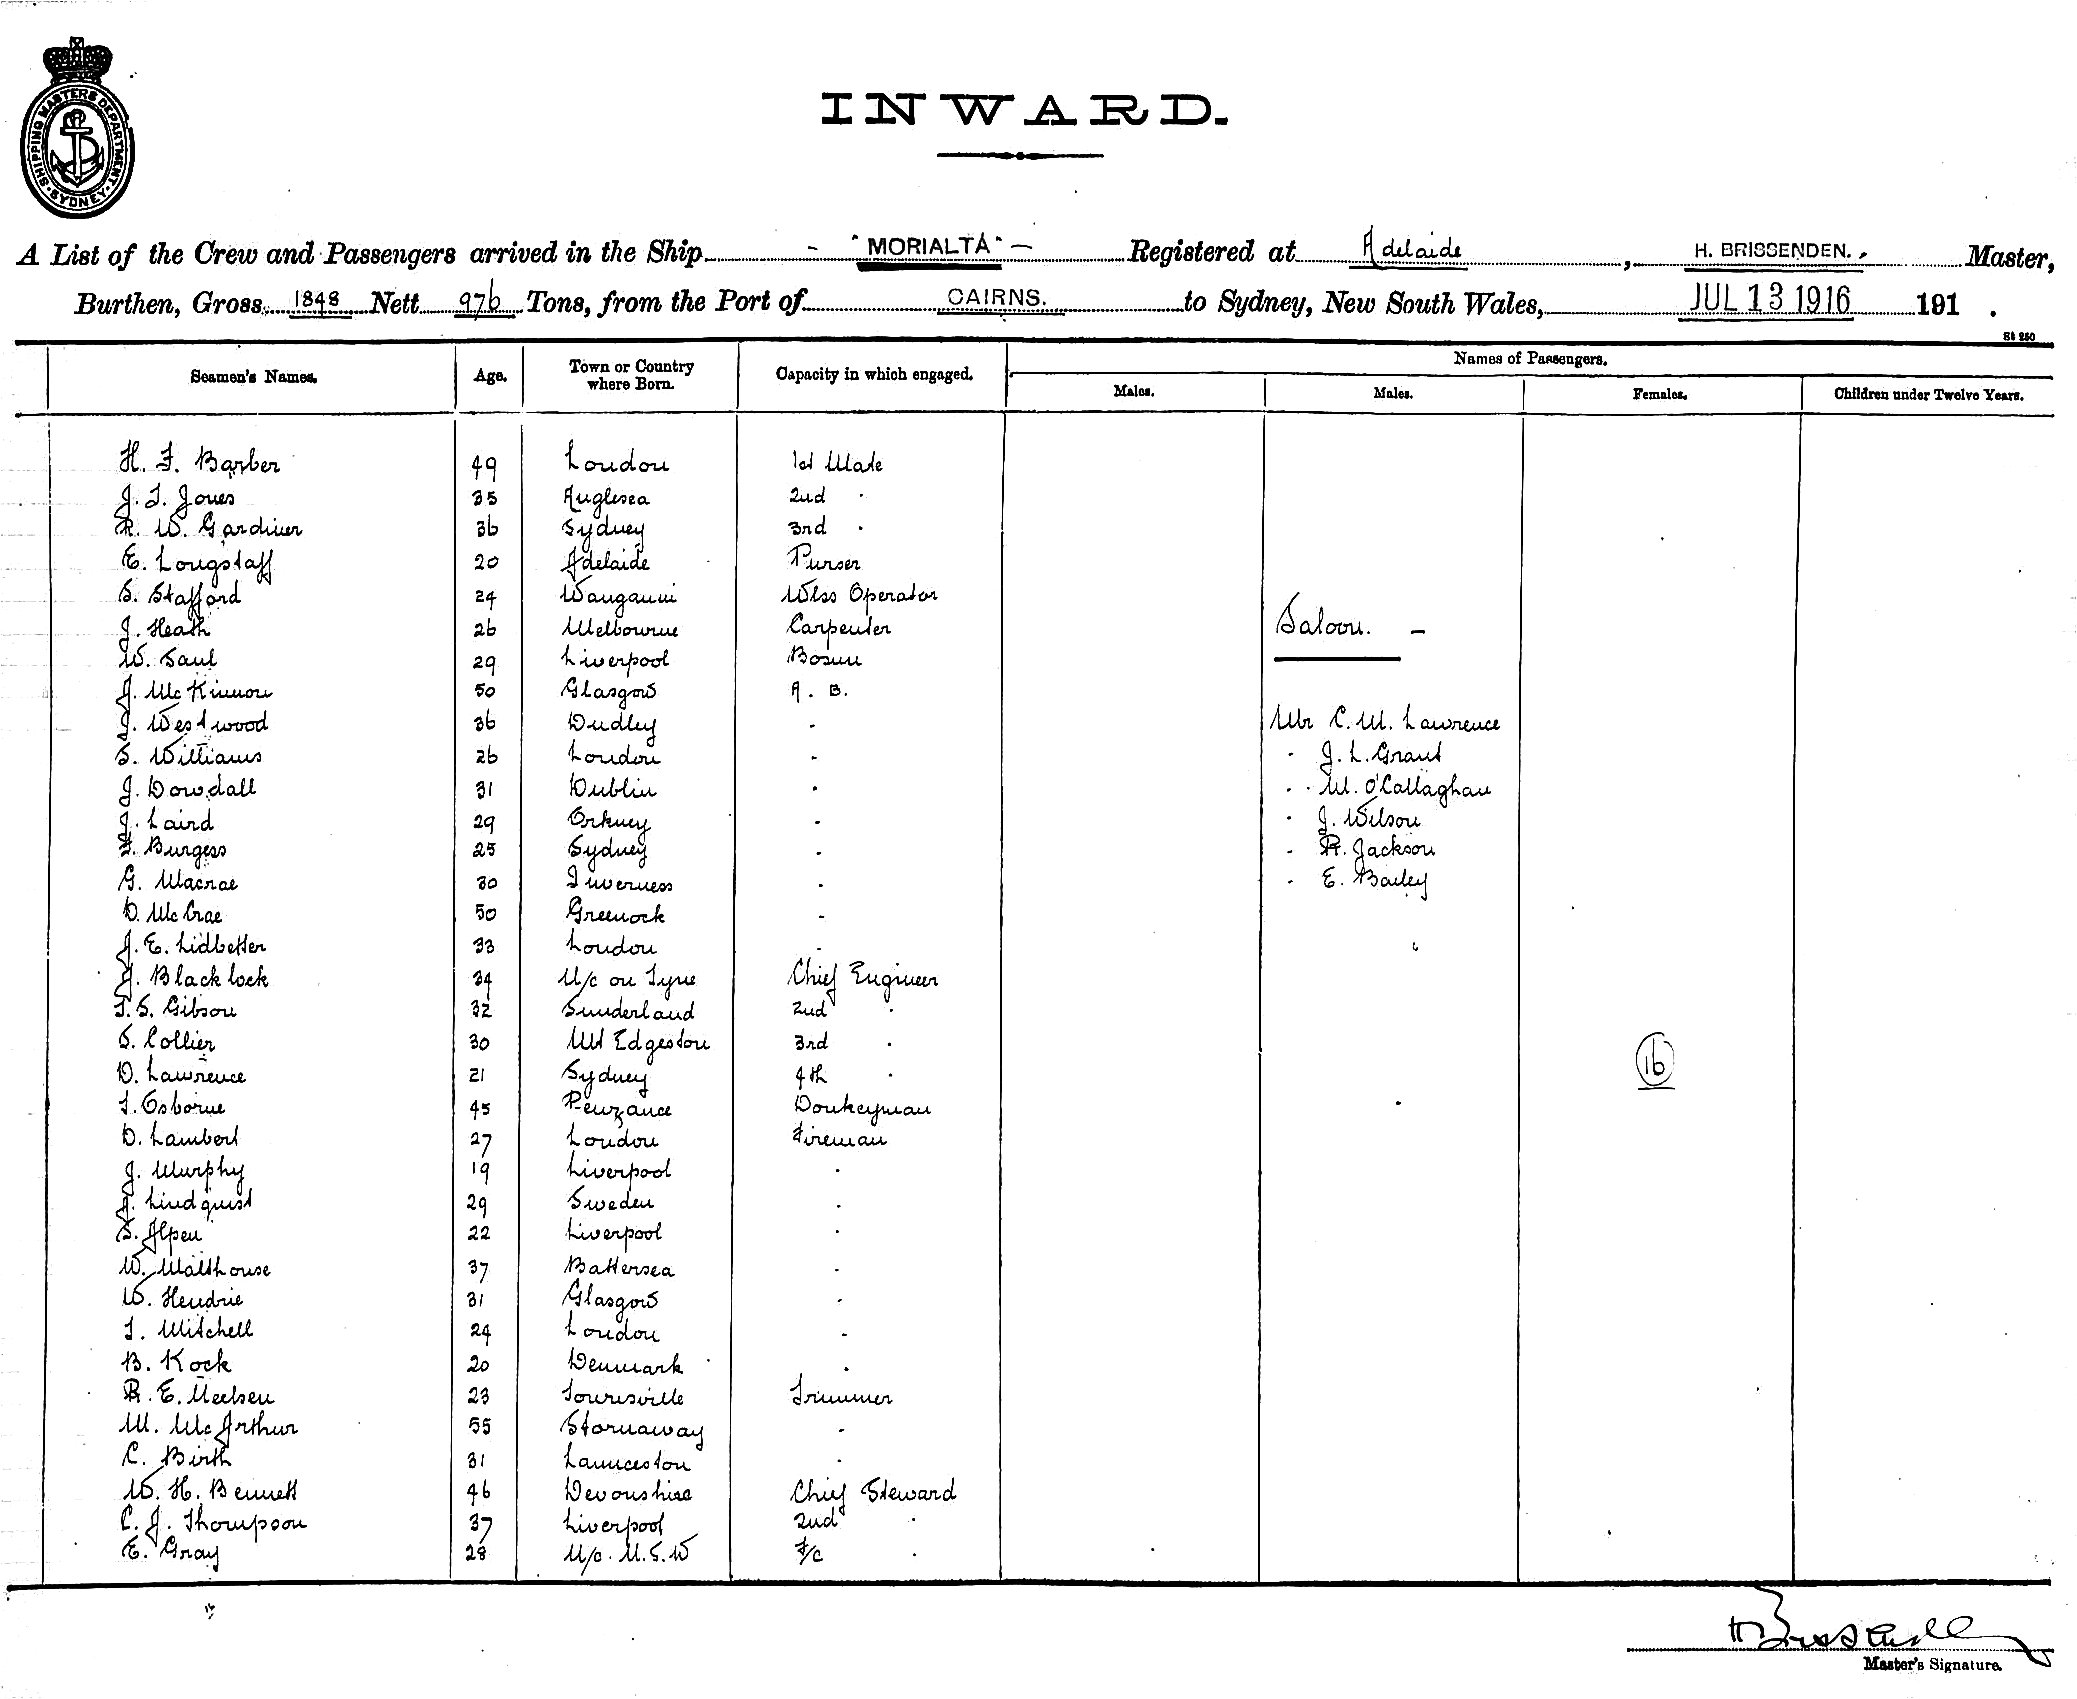 SHIPPING MASTERS DEPARTMENT. SYDNEY
INWARD.
A List of the Crew and Passengers arrived in the Ship - "MORIALTA" - Registered at Adelaide, H. BRISSENDEN., Master,
Burthen, Gross, 1848 Nett 976 Tons, from the Port of CAIRNS. to Sydney, New South Wales, JUL 13 1916 191 .
St 250
Seamen's Names. Age. Town or Country where Born. Capacity in which engaged. Names of Passengers.
Males. Males. Females. Children under Twelve Years.
H. F. Barber 49 London 1st Mate
J. T. Jones 35 Anglesea 2nd "
R. W. Gardiner 36 Sydney 3rd "
E. Longstaff 20 Adelaide Purser
S. Stafford 24 Wanganui Wlss Operator
J. Heath 26 Melbourne Carpenter Saloon. -
W. Saul 29 Liverpool Bosun
A. McKinnon 50 Glasgow A. B.
J. Westwood 36 Dudley " Mr C. M. Lawrence
S. Williams 26 London " " J. L. Grant
J. Dowdall 31 Dublin " " M. O'Callaghan
J. Laird 29 Orkney " " J. Wilson
F. Burgess 25 Sydney " " R. Jackson
G. Macrae 30 Inverness " " E. Bailey
D. McCrae 50 Greenock "
A. E. Lidbetter 33 London "
A. Blacklock 34 N/c on Tyne Chief Engineer
T. S. Gibson 32 Sunderland 2nd "
S. Collier 30 Mt Edgeston 3rd " 16
D. Lawrence 21 Sydney 4th "
T. Osborne 45 Penzance Donkeyman
D. Lambert 27 London Fireman
J. Murphy 19 Liverpool "
A. Lindquist 29 Sweden "
S. Alpen 22 Liverpool "
W. Malthouse 37 Battersea "
W. Hendrie 31 Glasgow "
T. Mitchell 24 London "
B. Kock 20 Denmark "
R. E. Neelsen 23 Townsville Trimmer
M. McArthur 55 Stornaway "
C. Birth 31 Launceston "
W. H. Bennett 46 Devonshire Chief Steward
C. J. Thompson 37 Liverpool 2nd "
E. Gray 28 N/c. N.S.W F/c "
H Brissenden
Master's Signature.